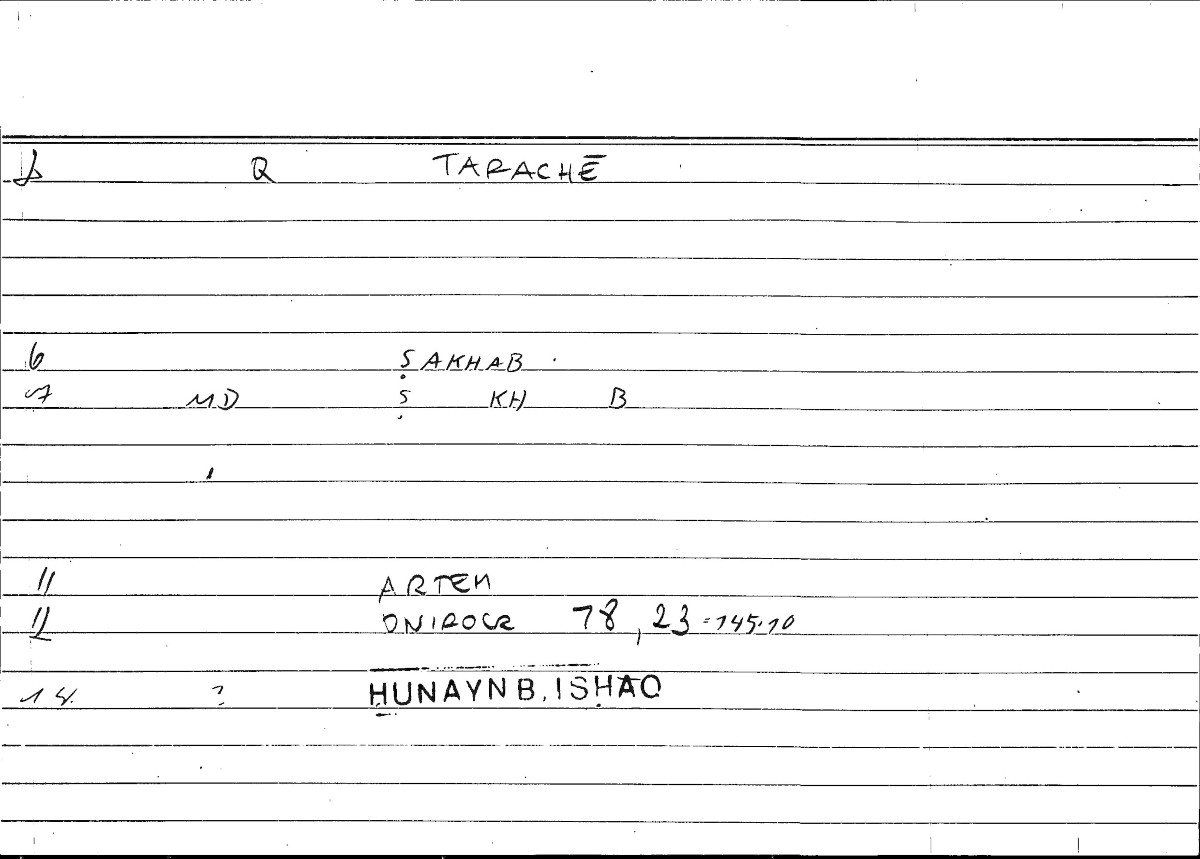 1 Q TARACHĒ
6 ṢAKHAB
7 MD Ṣ KH B
11 ARTEM
12 ONIROCR 78,23=145.10
14. ? ḤUNAYN B. ISḤAQ